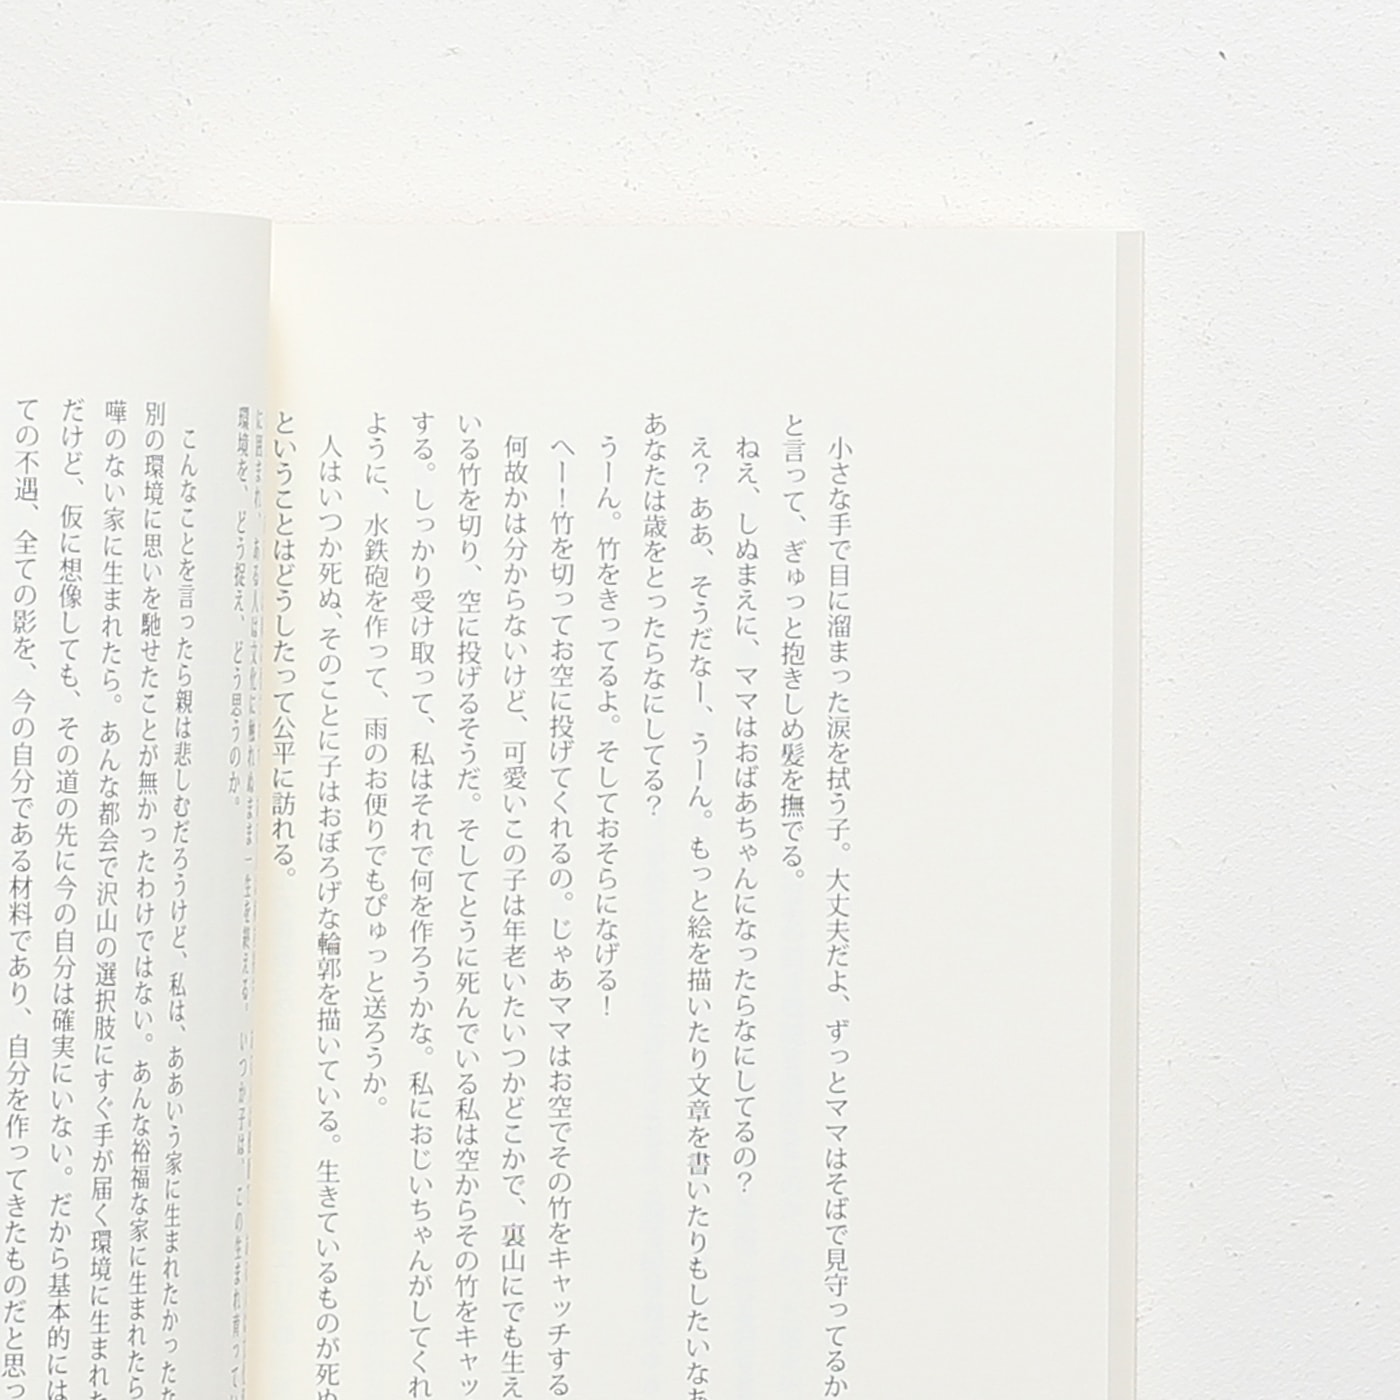 小さな手で目に溜まった涙を拭う子。大丈夫だよ、ずっとママはそばで見守ってるか
と言って、ぎゅっと抱きしめ髪を撫でる。
ねえ、しぬまえに、ママはおばあちゃんになったらなにしてるの?
え? ああ、そうだなー、うーん。もっと絵を描いたり文章を書いたりもしたいなあ
あなたは歳をとったらなにしてる?
うーん。竹をきってるよ。そしておそらになげる!
へー!竹を切ってお空に投げてくれるの。じゃあママはお空でその竹をキャッチする
何故かは分からないけど、可愛いこの子は年老いたいつかどこかで、裏山にでも生え
いる竹を切り、空に投げるそうだ。そしてとうに死んでいる私は空からその竹をキャッ
する。しっかり受け取って、私はそれで何を作ろうかな。私におじいちゃんがしてくれ
ように、水鉄砲を作って、雨のお便りでもぴゅっと送ろうか。
人はいつか死ぬ、そのことに子はおぼろげな輪郭を描いている。生きているものが死ぬ
ということはどうしたって公平に訪れる。
に囲まれ、ある人は文化に触れぬまま一生を終える。いつか子は、この生まれ育ってい
環境を、どう捉え、どう思うのか。
こんなことを言ったら親は悲しむだろうけど、私は、ああいう家に生まれたかったな
別の環境に思いを馳せたことが無かったわけではない。あんな裕福な家に生まれたら
嘩のない家に生まれたら。あんな都会で沢山の選択肢にすぐ手が届く環境に生まれた
だけど、仮に想像しても、その道の先に今の自分は確実にいない。だから基本的には
ての不遇、全ての影を、今の自分である材料であり、自分を作ってきたものだと思っ